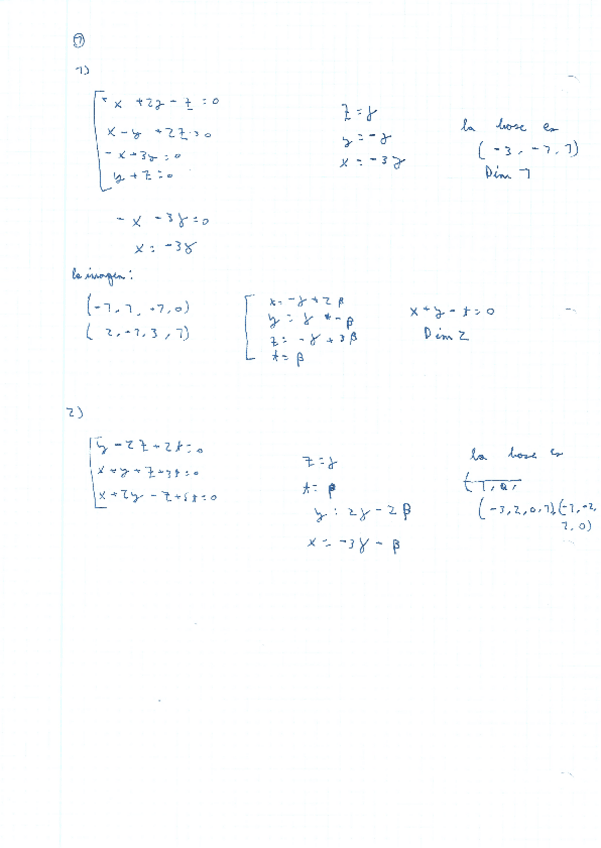 ⑦
1)
- x + 2y - z = 0
x - y + 2z = 0
- x + 3y = 0
y + z = 0
z = γ
y = -γ
x = -3γ
la base es
(-3, -1, 1)
Dim 1
- x - 3γ = 0
x = -3γ
la imagen:
(-1, 1, -1, 0)
(2, -1, 3, 1)
x = -γ + 2β
y = γ - β
z = -γ + 3β
t = β
x + y - t = 0
Dim 2
2)
y - 2z + 2t = 0
x + y + z + 3t = 0
x + 2y - z + 5t = 0
z = γ
t = β
y = 2γ - 2β
x = -3γ - β
la base es
(-3, 2, 0, 1) (-1, -2,
1, 0)